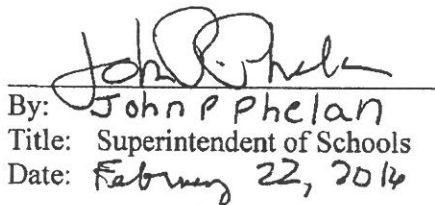 John P. Phelan
By: John P Phelan
Title: Superintendent of Schools
Date: February 22, 2016